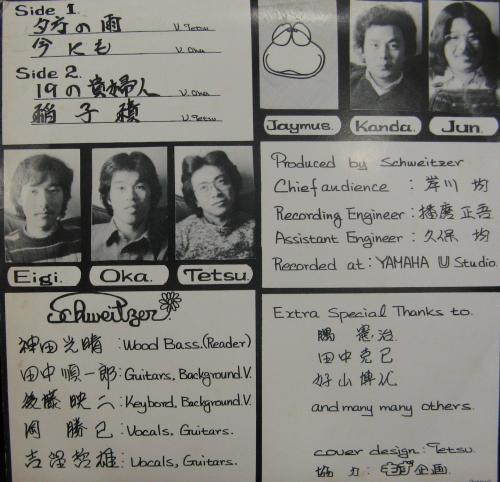 Side 1.
夕方の雨 V. Tetsu
今 にも V. Oka
Side 2.
19の貴婦人 V. Oka
稲子 V. Tetsu
Jaymus. Kanda. Jun.
Eigi. Oka. Tetsu.
Produced by Schweitzer
Chief audience : 岸川 均
Recording Engineer : 播磨正吾
Assistant Engineer : 久保 均
Recorded at : YAMAHA U Studio.
Schweitzer.
神田光晴 : Wood Bass. (Reader)
田中順一郎 : Guitars, Background.V.
後藤映二 : Keybord, Background.V.
岡 勝己 : Vocals, Guitars.
哲雄 : Vocals, Guitars.
Extra Special Thanks to.
憲治.
田中克己
and many many others.
cover design : Tetsu.
協 力 : 企画.